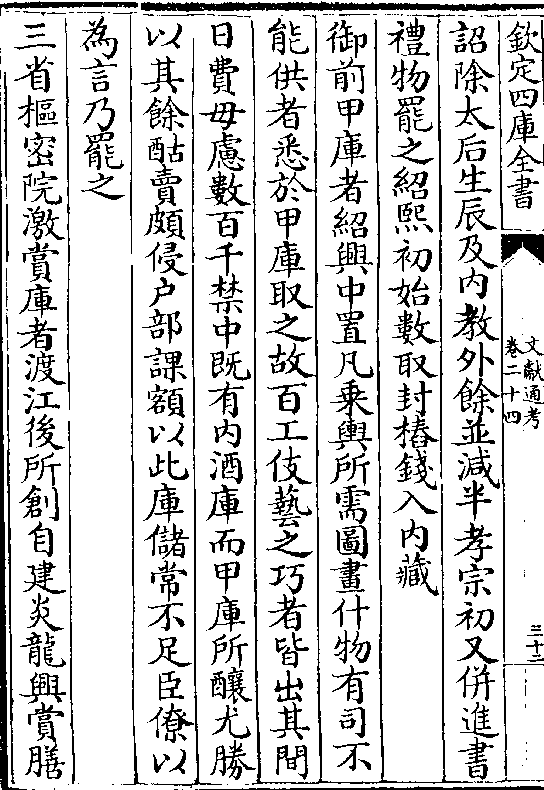 欽定四庫全書
文獻通考
卷二十四
三十二
詔除太后生辰及内教外餘並減半孝宗初又併進書
禮物罷之紹熙初始數取封樁錢入内藏
御前甲庫者紹興中置凡乗輿所需圖畫什物有司不
能供者悉於甲庫取之故百工伎藝之巧者皆出其間
日費毋慮數百千禁中既有内酒庫而甲庫所釀尤勝
以其餘酤賣頗侵户部課額以此庫儲常不足臣僚以
為言乃罷之
三省樞密院激賞庫者渡江後所創自建炎龍興賞膳